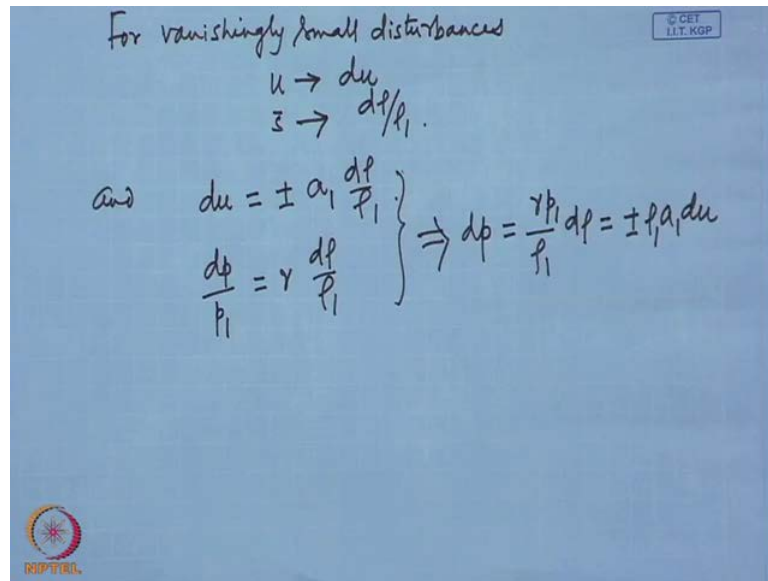 For vanishingly small disturbances
© CET
I.I.T. KGP
u → du
s̄ → dρ/ρ₁.
and du = ± a₁ dρ/ρ₁
dp/p₁ = γ dρ/ρ₁ } ⇒ dp = γp₁/ρ₁ dρ = ±ρ₁a₁du
NPTEL